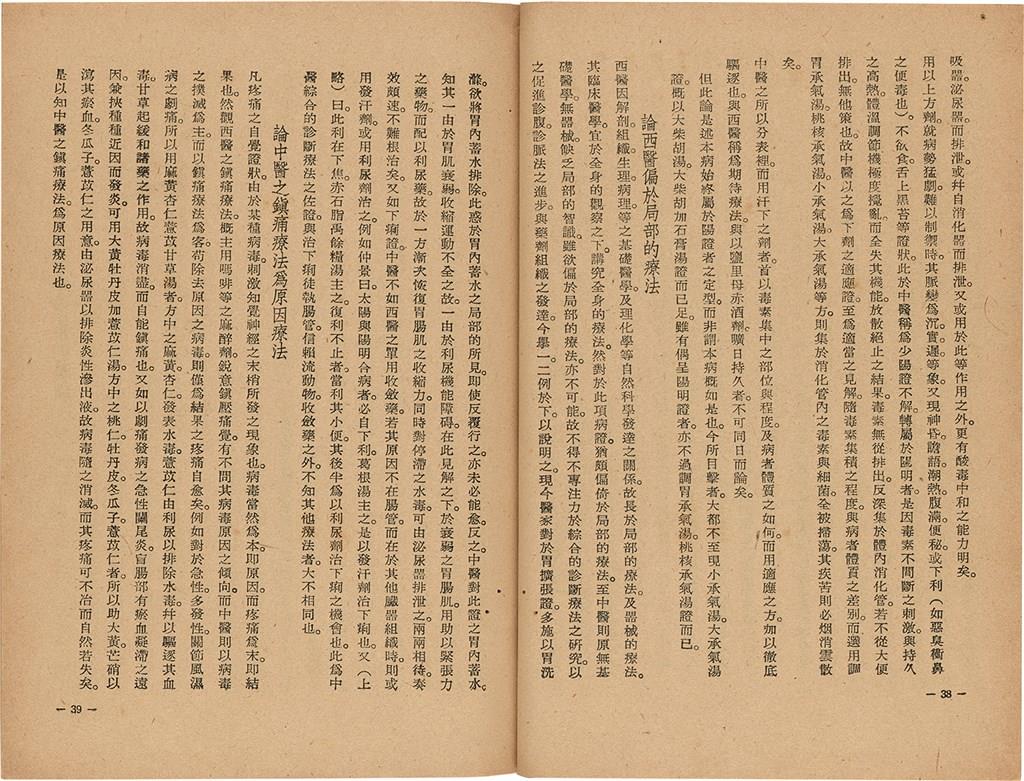 吸器。泌尿器。而排泄。或幷自消化器而排泄。又或用於此等作用之外。更有酸毒中和之能力明矣。
用以上方劑。就病勢猛劇。難以制禦時。其脈變爲沉實遲等象。又現神昏。譫語。潮熱。腹滿。便秘。或下利（如惡臭衝鼻
之便毒也）。不欲食。舌上黑苔等證狀。此於中醫稱爲少陽證不解。轉屬於陽明者。是因毒素不間斷之刺激。與持久
之高熱。體溫調節機極度攪亂。而全失其機能。放散絕止之結果。毒素無從排出。反深集於體內消化管。若不從大便
排出。無他策也。故中醫以之爲下劑之適應證。至爲適當之見解。隨毒素集積之程度。與病者體質之差別。而選用調
胃承氣湯。桃核承氣湯。小承氣湯。大承氣湯等方。則集於消化管內之毒素與細菌。全被掃蕩。其疾苦則必烟消雲散
矣。
中醫之所以分表裡。而用汗下之劑者。首以毒素集中之部位與程度。及病者體質之如何。而用適應之方。加以徹底
驅逐也。與西醫稱爲期待療法。與以鹽里母赤酒劑。曠日持久者。不可同日而論矣。
但此論是述本病始終屬於陽證者之定型。而非謂本病概如是也。今所目擊者。大都不至現小承氣湯。大承氣湯
證。概以大柴胡湯。大柴胡加石膏湯證而已足。雖有偶呈陽明證者。亦不過調胃承氣湯。桃核承氣湯證而已。
論西醫偏於局部的療法
西醫因解剖。組織。生理。病理等之基礎醫學。及理化學等自然科學發達之關係。故長於局部的療法。及器械的療法。
其臨床醫學。宜於全身的觀察之下。講究全身的療法。然對於此項病證。猶頗偏倚於局部的療法。至中醫則原無基
礎醫學。無器械。缺乏局部的智識。雖欲偏於局部的療法。亦不可能。故不得不專注力於綜合的診斷療法之硏究。以
之促進診腹診脈法之進步。與藥劑組織之發達。今舉一二例於下。以說明之。現今醫家對於胃擴張證。多施以胃洗
— 38 —
滌。欲將胃內蓄水排除。此惑於胃內蓄水之局部的所見。即使反覆行之。亦未必能愈。反之。中醫對此證之胃內蓄水。
知其一由於胃肌衰弱。收縮運動不全之故。一由於利尿機能障碍。在此見解之下。於衰弱之胃腸肌。用助以緊張力
之藥物。而配以利尿藥。故於一方漸次恢復胃腸肌之收縮力。同時對停滯之水毒。可由泌尿器排泄之。兩兩相待。奏
效頗速。不難根治矣。又如下痢證。中醫不如西醫之單用收斂藥。若其原因不在腸管。而在於其他臟器組織時。則或
用發汗劑。或用利尿劑治之。例如仲景曰。太陽與陽明合病者。必自下利。葛根湯主之。是以發汗劑治下痢也。又（上
略）曰。此利在下焦。赤石脂禹餘糧湯主之。復利不止者。當利其小便。其後半爲以利尿劑治下痢之機會也。此爲中
醫綜合的診斷療法之佐證。與治下痢徒執腸管。信賴流動物。收斂藥之外。不知其他療法者。大不相同也。
論中醫之鎭痛療法爲原因療法
凡疼痛之自覺證狀。由於某種病毒刺激知覺神經之末梢所發之現象也。病毒當然爲本。即原因。而疼痛爲末。即結
果也。然觀西醫之鎭痛療法。概主用嗎啡等之麻醉劑。銳意鎭壓痛覺。有不問其病毒原因之傾向。而中醫則以病毒
之撲滅爲主。而以鎭痛療法爲客。苟除去原因之病毒。則僅爲結果之疼痛自愈矣。例如對於急性多發性關節風濕
病之劇痛。所以用麻黃杏仁薏苡甘草湯者。方中之麻黃。杏仁。發表水毒。薏苡仁由利尿以排除水毒。幷以驅逐其血
毒。甘草起緩和諸藥之作用。故病毒消盡。而自能鎭痛也。又如以劇痛發病之急性闌尾炎。盲腸部有瘀血凝滯之遠
因。兼挾種種近因而發炎。可用大黃牡丹皮加薏苡仁湯。方中之桃仁。牡丹皮。冬瓜子。薏苡仁者。所以助大黃。芒硝以
瀉其瘀血。冬瓜子。薏苡仁之用意。由泌尿器以排除炎性滲出液。故病毒隨之消滅。而其疼痛可不治而自然若失矣。
是以知中醫之鎭痛療法。爲原因療法也。
— 39 —